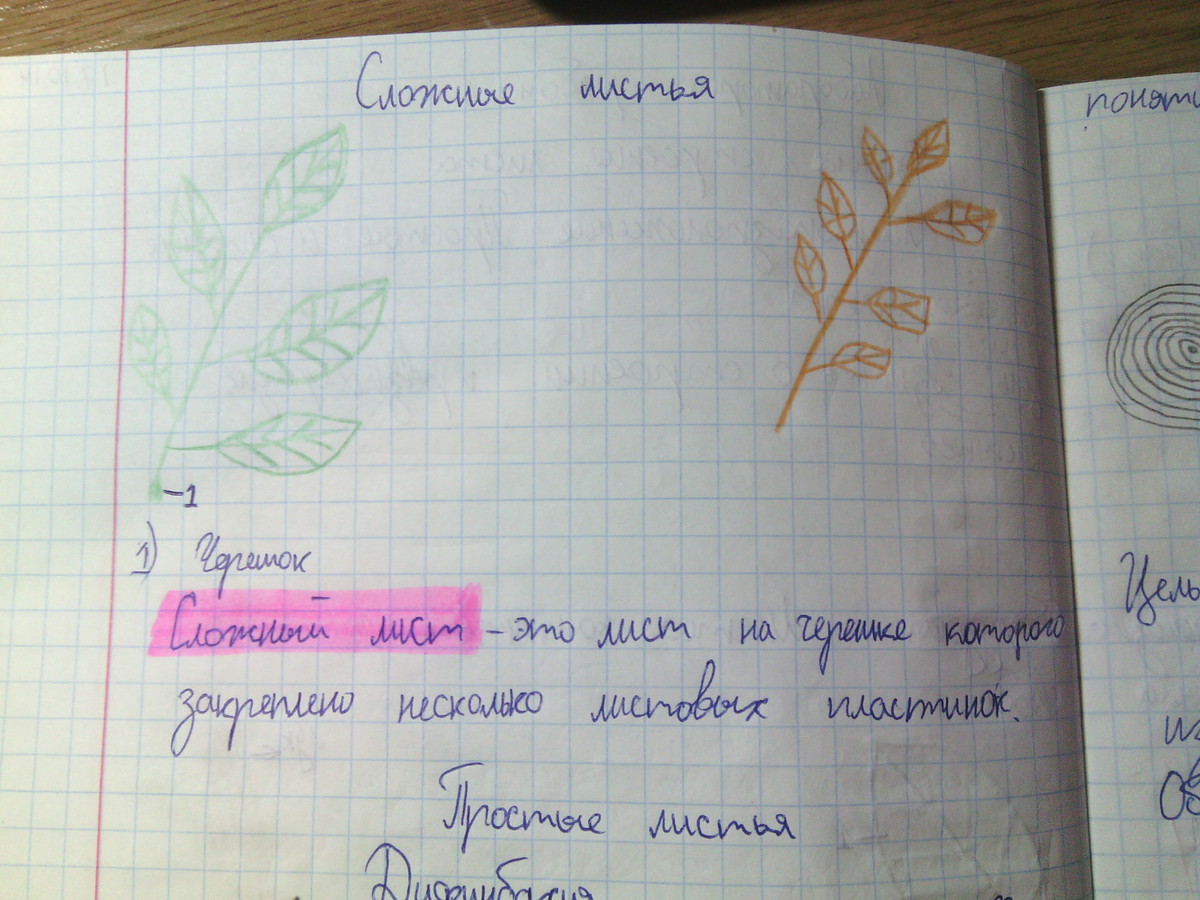 Сложные листья
-1
1) Черешок
Сложный лист - это лист на черешке которого
закреплено несколько листовых пластинок.
Простые листья
Цель